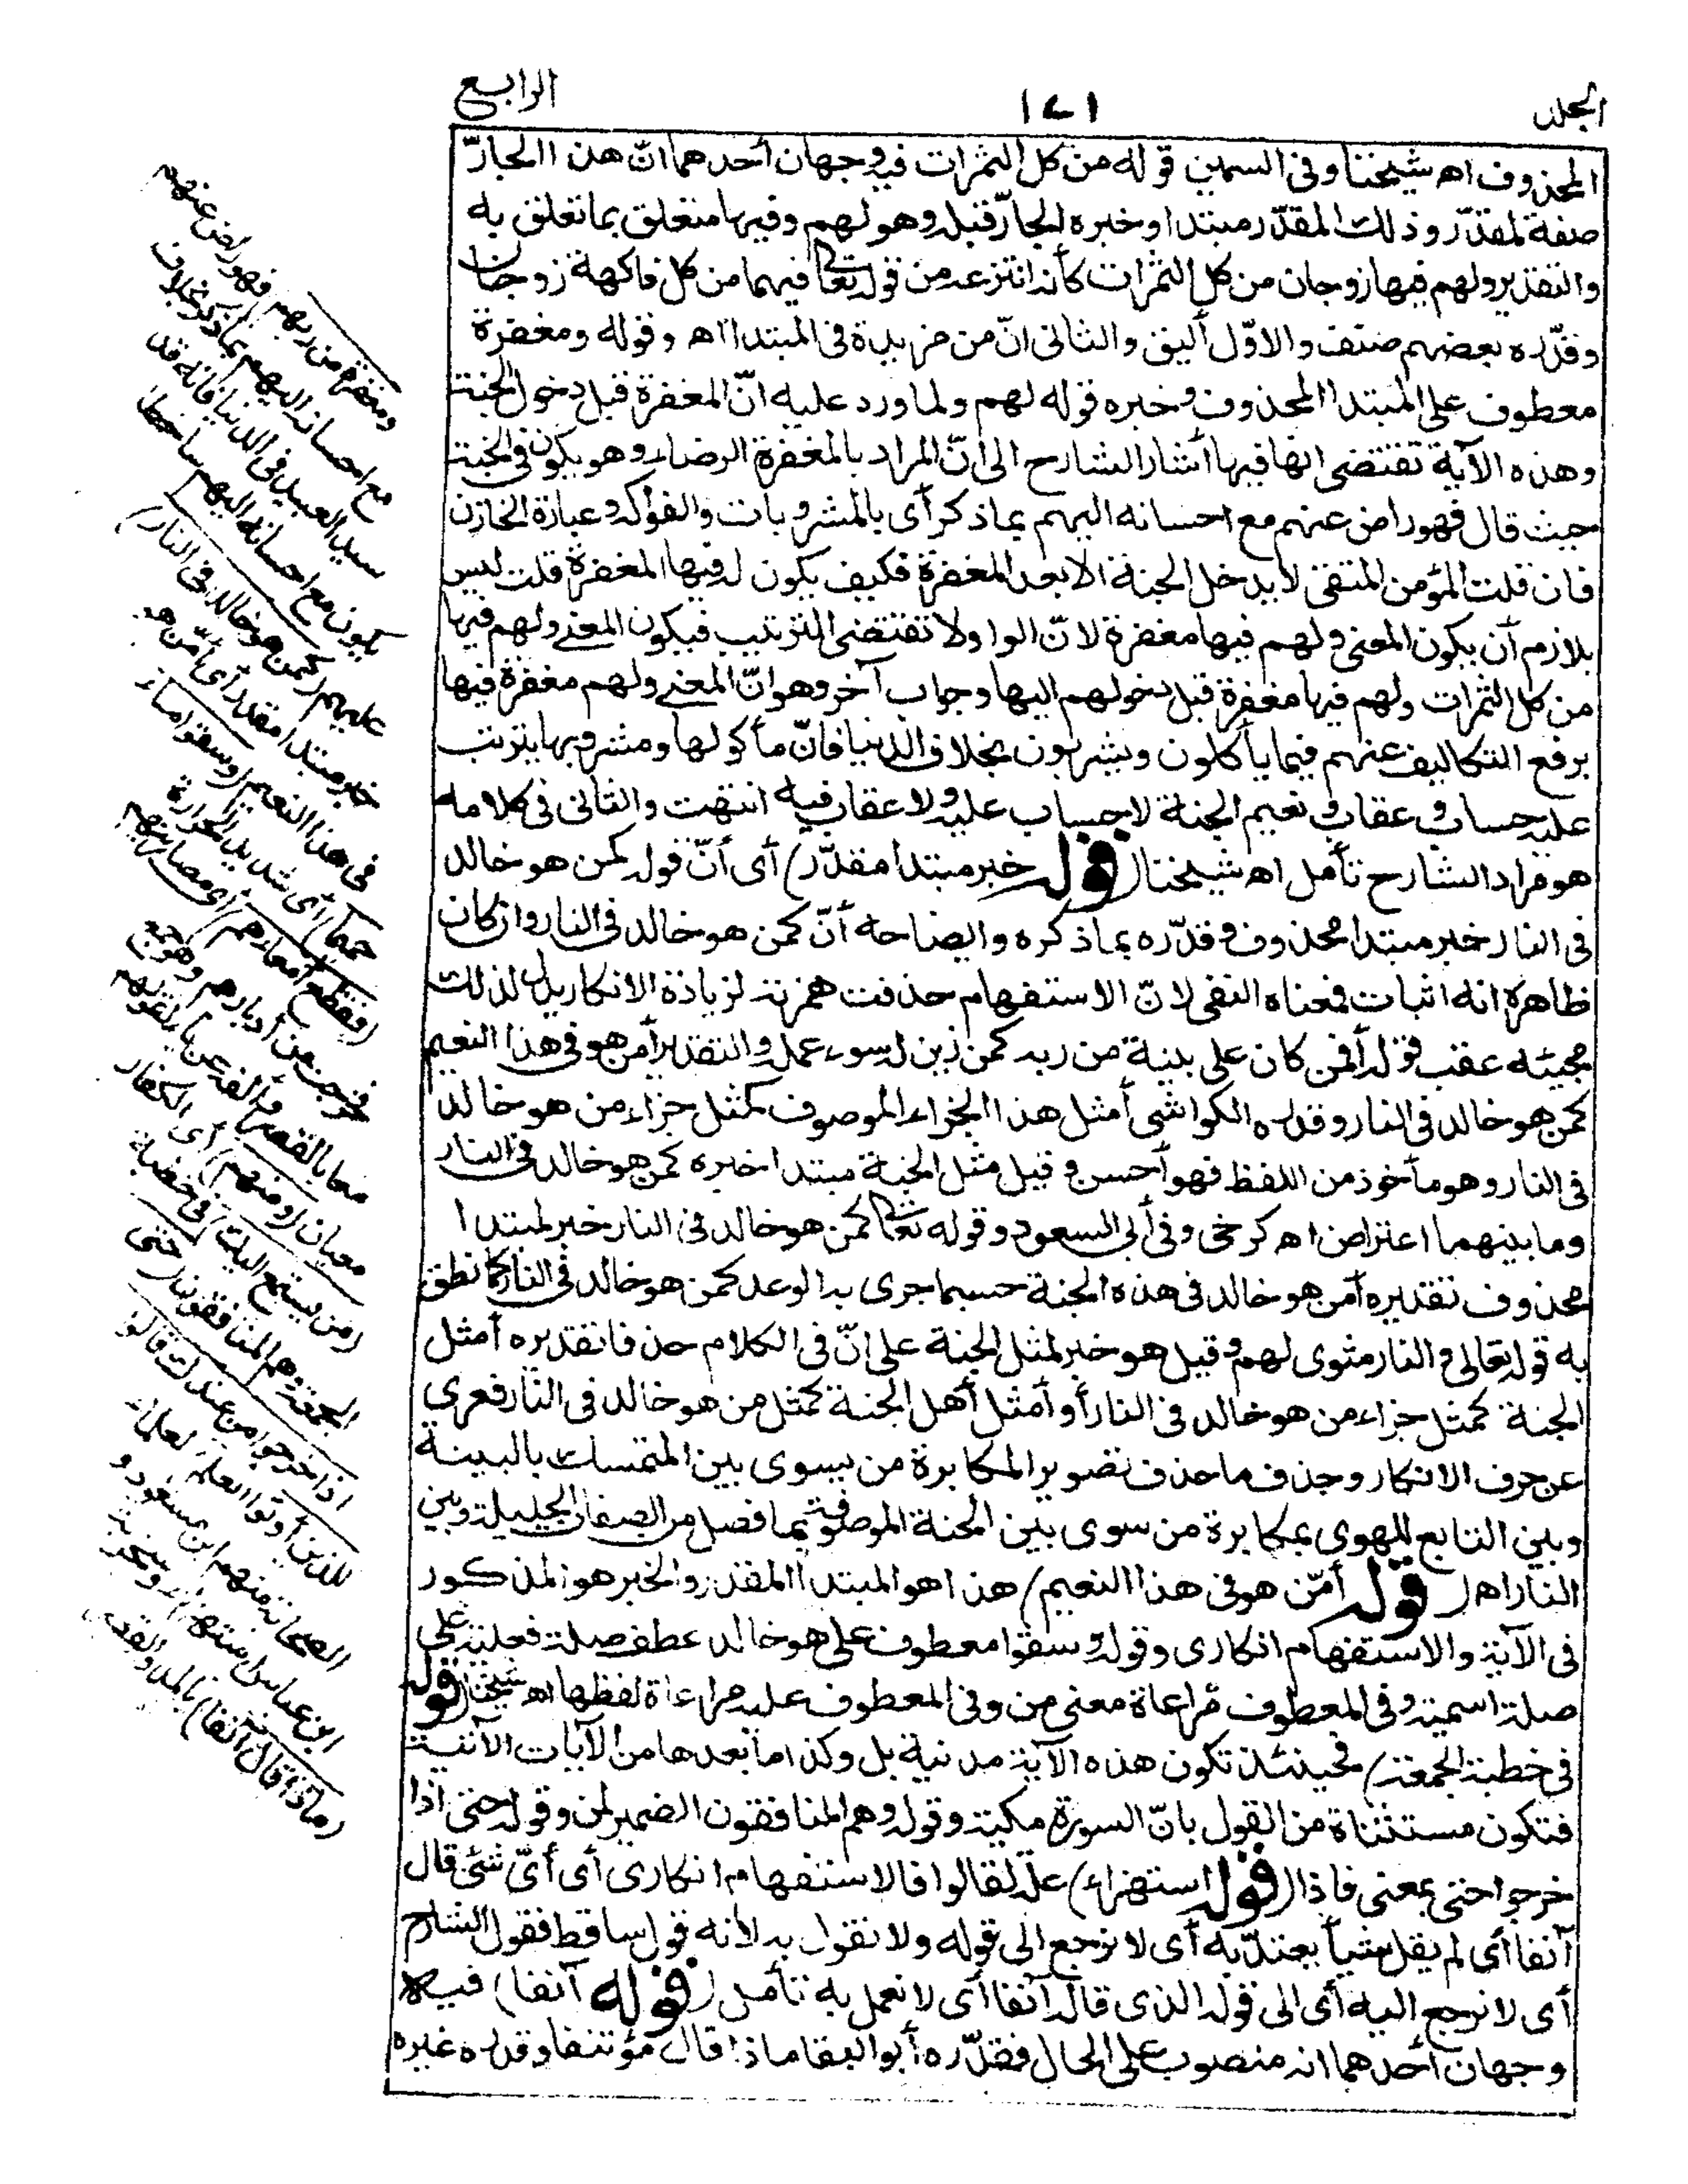 المجلد
١٧١
الرابع
المحذوف اه شيخنا وفى السمين قوله من كل الثمرات فيه وجهان أحدهما انّ هذا الجارّ
صفة لمقدّر وذلك المقدّر مبتدا وخبره الجارّ قبله وهو لهم وفيها متعلق بما تعلق به
والتقدير ولهم فيها زوجان من كل الثمرات كأنه انتزعه من قوله تعا فيهما من كل فاكهة زوجان
وقدّره بعضهم صنف والاوّل أليق والثانى انّ من مزيدة فى المبتدا اه وقوله ومغفرة
معطوف على المبتدا المحذوف وخبره قوله لهم ولما ورد عليه انّ المغفرة قبل دخول الجنة
وهذه الآية تقتضى انها فيها أشار الشارح الى انّ المراد بالمغفرة الرضاء وهو يكون فى الجنة
حيث قال فهو راض عنهم مع احسانه اليهم بما ذكر أى بالمشروبات والفواكه وعبارة الخازن
فان قلت المؤمن المتقى لا يدخل الجنة الا بعد المغفرة فكيف يكون له فيها المغفرة قلت ليس
بلازم أن يكون المعنى ولهم فيها مغفرة لانّ الواو لا تقتضى الترتيب فيكون المعنى ولهم فيها
من كل الثمرات ولهم فيها مغفرة قبل دخولهم اليها وجواب آخر وهو انّ المعنى ولهم مغفرة فيها
برفع التكاليف عنهم فيما يأكلون ويشربون بخلاف الدنيا فانّ مأكولها ومشروبها يترتب
عليه حساب وعقاب ونعيم الجنة لا حساب عليه ولا عقاب فيه انتهت والثانى فى كلامه
هو مراد الشارح تأمل اه شيخنا (قوله خبر مبتدا مقدّر) أى أنّ قوله كمن هو خالد
فى النار خبر مبتدا محذوف وقدّره بما ذكره وايضاحه أنّ كمن هو خالد فى النار وان كان
ظاهره انه اثبات فمعناه النفى لانّ الاستفهام حذفت همزته لزيادة الانكار بدليل لذلك
مجيئه عقب قوله أفمن كان على بينة من ربه كمن زين له سوء عمله والتقدير أمن هو فى هذا النعيم
كمن هو خالد فى النار وقدره الكواشى أمثل هذا الجزاء الموصوف كمثل جزاء من هو خالد
فى النار وهو مأخوذ من اللفظ فهو أحسن وقيل مثل الجنة مبتدا خبره كمن هو خالد فى النار
وما بينهما اعتراض اه كرخى وفى أبى السعود وقوله تعا كمن هو خالد فى النار خبر لمبتدا
محذوف تقديره أمن هو خالد فى هذه الجنة حسبما جرى به الوعد كمن هو خالد فى النار كما نطق
به قوله تعالى والنار مثوى لهم وقيل هو خبر لمثل الجنة على انّ فى الكلام حذفا تقديره أمثل
الجنة كمثل جزاء من هو خالد فى النار أو أمثل أهل الجنة كمثل من هو خالد فى النار فعرى
عن حرف الانكار وحذف ما حذف تصوير المكابرة من يسوى بين المتمسك بالبينة
وبين التابع للهوى بمكابرة من سوى بين الجنة الموصوفة بما فصل من الصفات الجليلة وبين
النار اه (قوله أمّن هو فى هذا النعيم) هذا هو المبتدا المقدر والخبر هو المذكور
فى الآية والاستفهام انكارى وقوله وسقوا معطوف على هو خالد عطف صلة فعلية على
صلة اسمية وفى المعطوف مراعاة معنى من وفى المعطوف عليه مراعاة لفظها اه شيخنا (قوله
فى خطبة الجمعة) فحينئذ تكون هذه الآية مدنية بل وكذا ما بعدها من الآيات الآتية
فتكون مستثناة من القول بانّ السورة مكية وقوله وهم المنافقون الضمير لمن وقوله حتى اذا
خرجوا حتى بمعنى فاذا (قوله استهزاء) علة لقالوا فالاستفهام انكارى أى أىّ شئ قال
آنفا أى لم يقل شيأ يعتدّ به أى لا نرجع الى قوله ولا نقول به لأنه قول ساقط فقول الشارح
أى لا نرجع اليه أى الى قوله الذى قاله آنفا أى لا نعمل به تأمل (قوله آنفا) فيه
وجهان أحدهما انه منصوب على الحال فقدّره أبو البقا ماذا قال مؤتنفا وقدره غيره
ومغفرة من ربهم) فهو راض عنهم
مع احسانه اليهم بما ذكر بخلاف
سيد العبيد فى الدنيا فانه قد
يكون مع احسانه اليهم ساخطا
عليهم (كمن هو خالد فى النار)
خبر مبتدا مقدر أى أمّن هو
فى هذا النعيم (وسقوا ماء
حميما) أى شديد الحرارة
(فقطع أمعاءهم) أى مصارينهم
فخرجت من أدبارهم وهو جمع
معا بالقصر وألفه عن ياء لقولهم
معيان (ومنهم) أى الكفار
(من يستمع اليك) فى خطبة
الجمعة وهم المنافقون (حتى
اذا خرجوا من عندك قالوا
للذين أوتوا العلم) لعلماء
الصحابة منهم ابن مسعود و
ابن عباس استهزاء وسخرية
(ماذا قال آنفا) بالمد والقصر